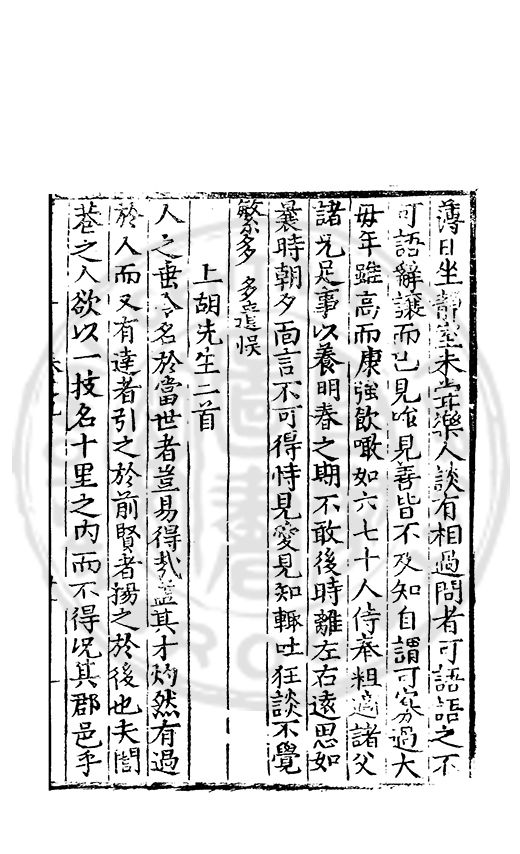 薄日坐靜室未嘗樂人談有相過問者可語語之不
可語辭讓而已見咍見善皆不及知自謂可寡過大
母年雖高而康強飲噉如六七十人侍奉粗適諸父
諸兄足事以養明春之期不敢後時離左右遠思如
曩時朝夕面言不可得恃見愛見知輒吐狂談不覺
繁多 多遺悮
上胡先生二首
人之垂令名於當世者豈易得哉蓋其才灼然有過
於人而又有達者引之於前賢者揚之於後也夫閭
巷之人欲以一技名十里之內而不得况其郡邑乎